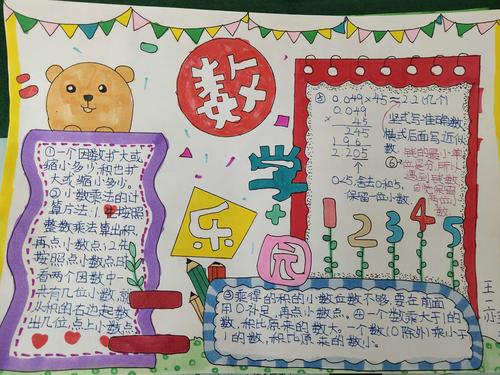 数
学
乐
园
①一个因数扩大或
缩小多少积也扩
大或缩小多少。
②小数乘法的计
算方法:1先按照
整数乘法算出积,
再点小数点;2先
按照点小数点时,
看两个因数中一
共有几位小数,就
从积的右边起数
出几位,点上小数点
③乘得的积的小数位数不够,要在前面
用0补足,再点小数点。④一个数乘大于1的
数,积比原来的数大。一个数(0除外)乘小于
1的数,积比原来的数小。
⑤0.049×45≈2.2(亿个)
0.049
× 45
245
196
2.205
0<5,舍去0和5,
保留一位小数。
竖式写准确数
横式后面写近似
数。
⑥
钱的最小单
位是分
1
2
3
4
5
王